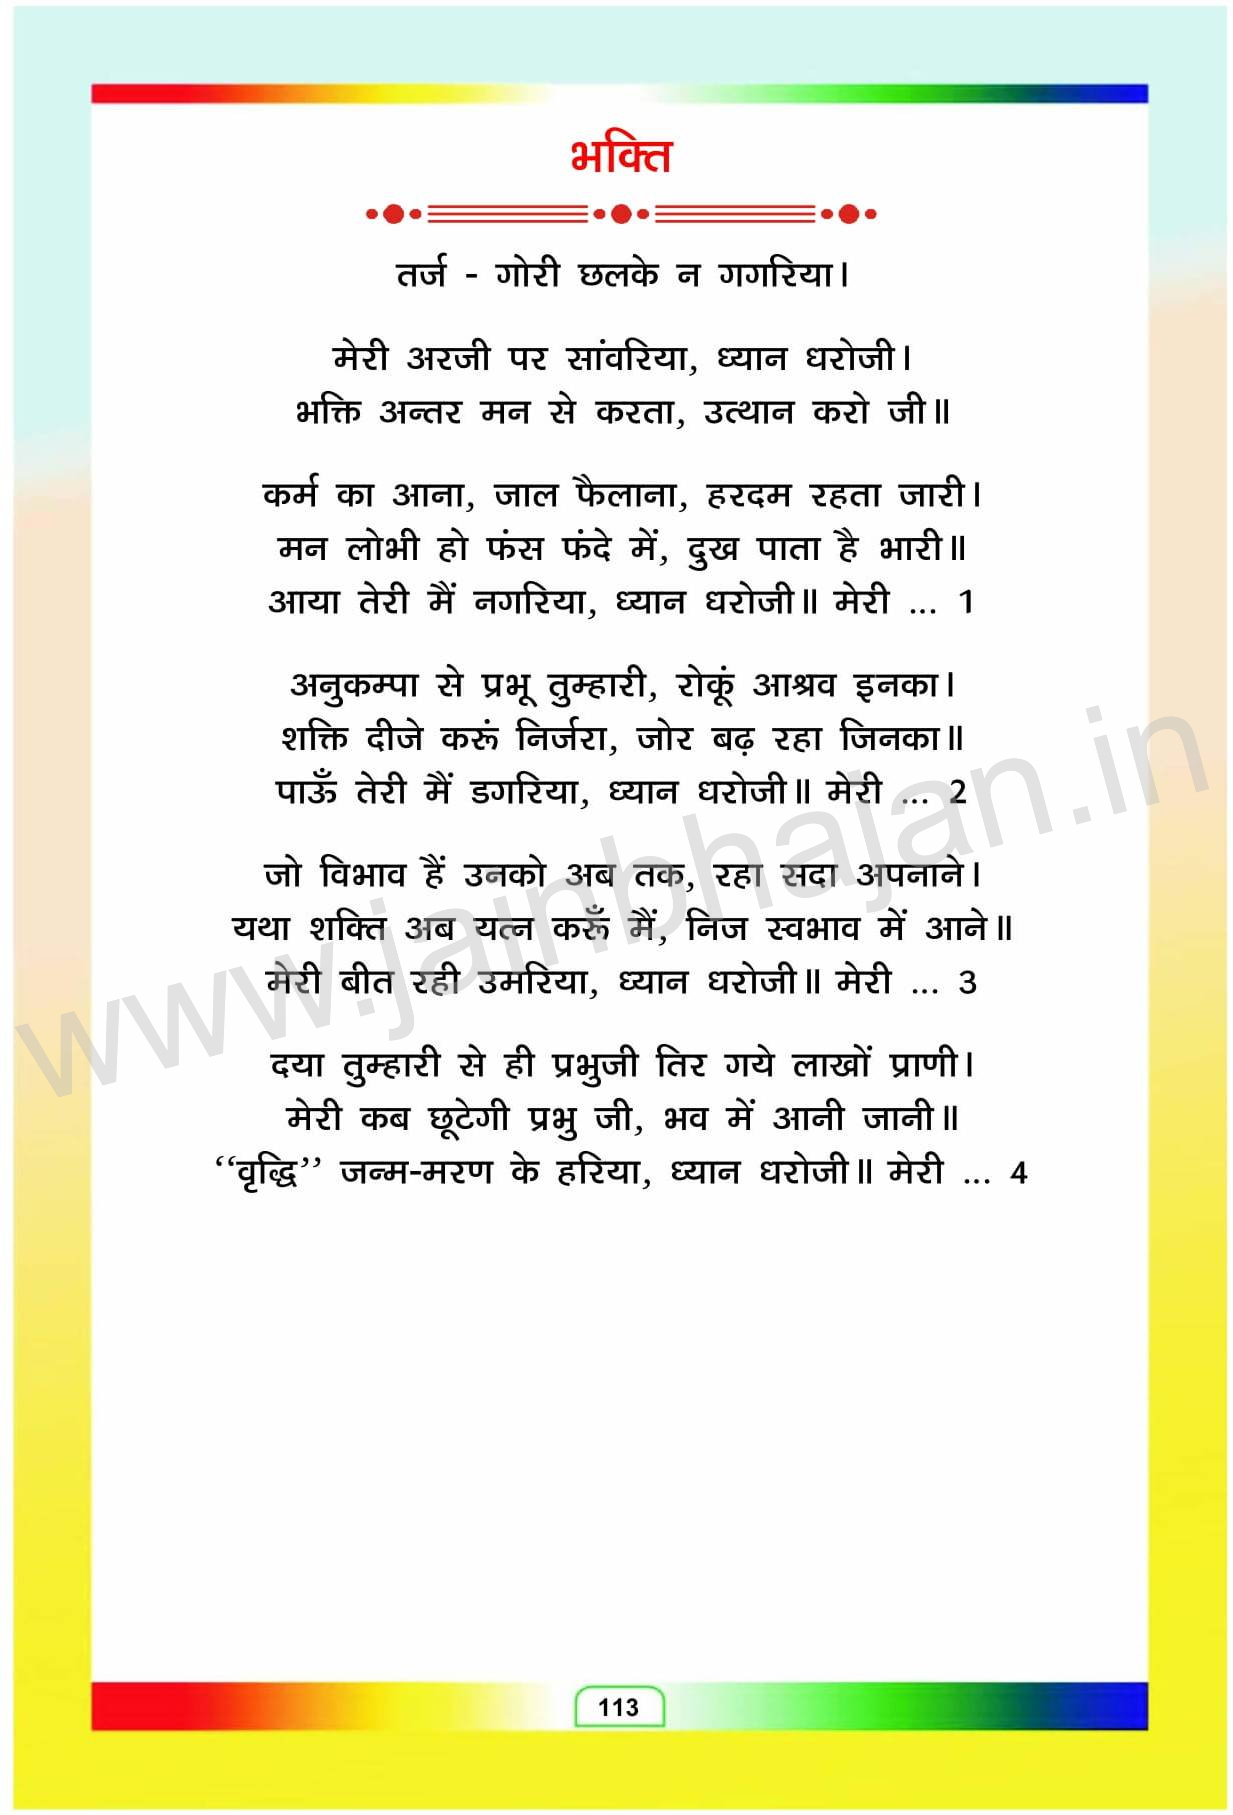 भक्ति
तर्ज - गोरी छलके न गगरिया।
मेरी अरजी पर सांवरिया, ध्यान धरोजी।
भक्ति अन्तर मन से करता, उत्थान करो जी॥
कर्म का आना, जाल फैलाना, हरदम रहता जारी।
मन लोभी हो फंस फंदे में, दुख पाता है भारी॥
आया तेरी मैं नगरिया, ध्यान धरोजी॥ मेरी ... 1
अनुकम्पा से प्रभू तुम्हारी, रोकूं आश्रव इनका।
शक्ति दीजे करूं निर्जरा, जोर बढ़ रहा जिनका॥
पाऊँ तेरी मैं डगरिया, ध्यान धरोजी॥ मेरी ... 2
जो विभाव हैं उनको अब तक, रहा सदा अपनाने।
यथा शक्ति अब यत्न करूँ मैं, निज स्वभाव में आने॥
मेरी बीत रही उमरिया, ध्यान धरोजी॥ मेरी ... 3
दया तुम्हारी से ही प्रभुजी तिर गये लाखों प्राणी।
मेरी कब छूटेगी प्रभु जी, भव में आनी जानी॥
‘‘वृद्धि’’ जन्म-मरण के हरिया, ध्यान धरोजी॥ मेरी ... 4
www.jainbhajan.in
113